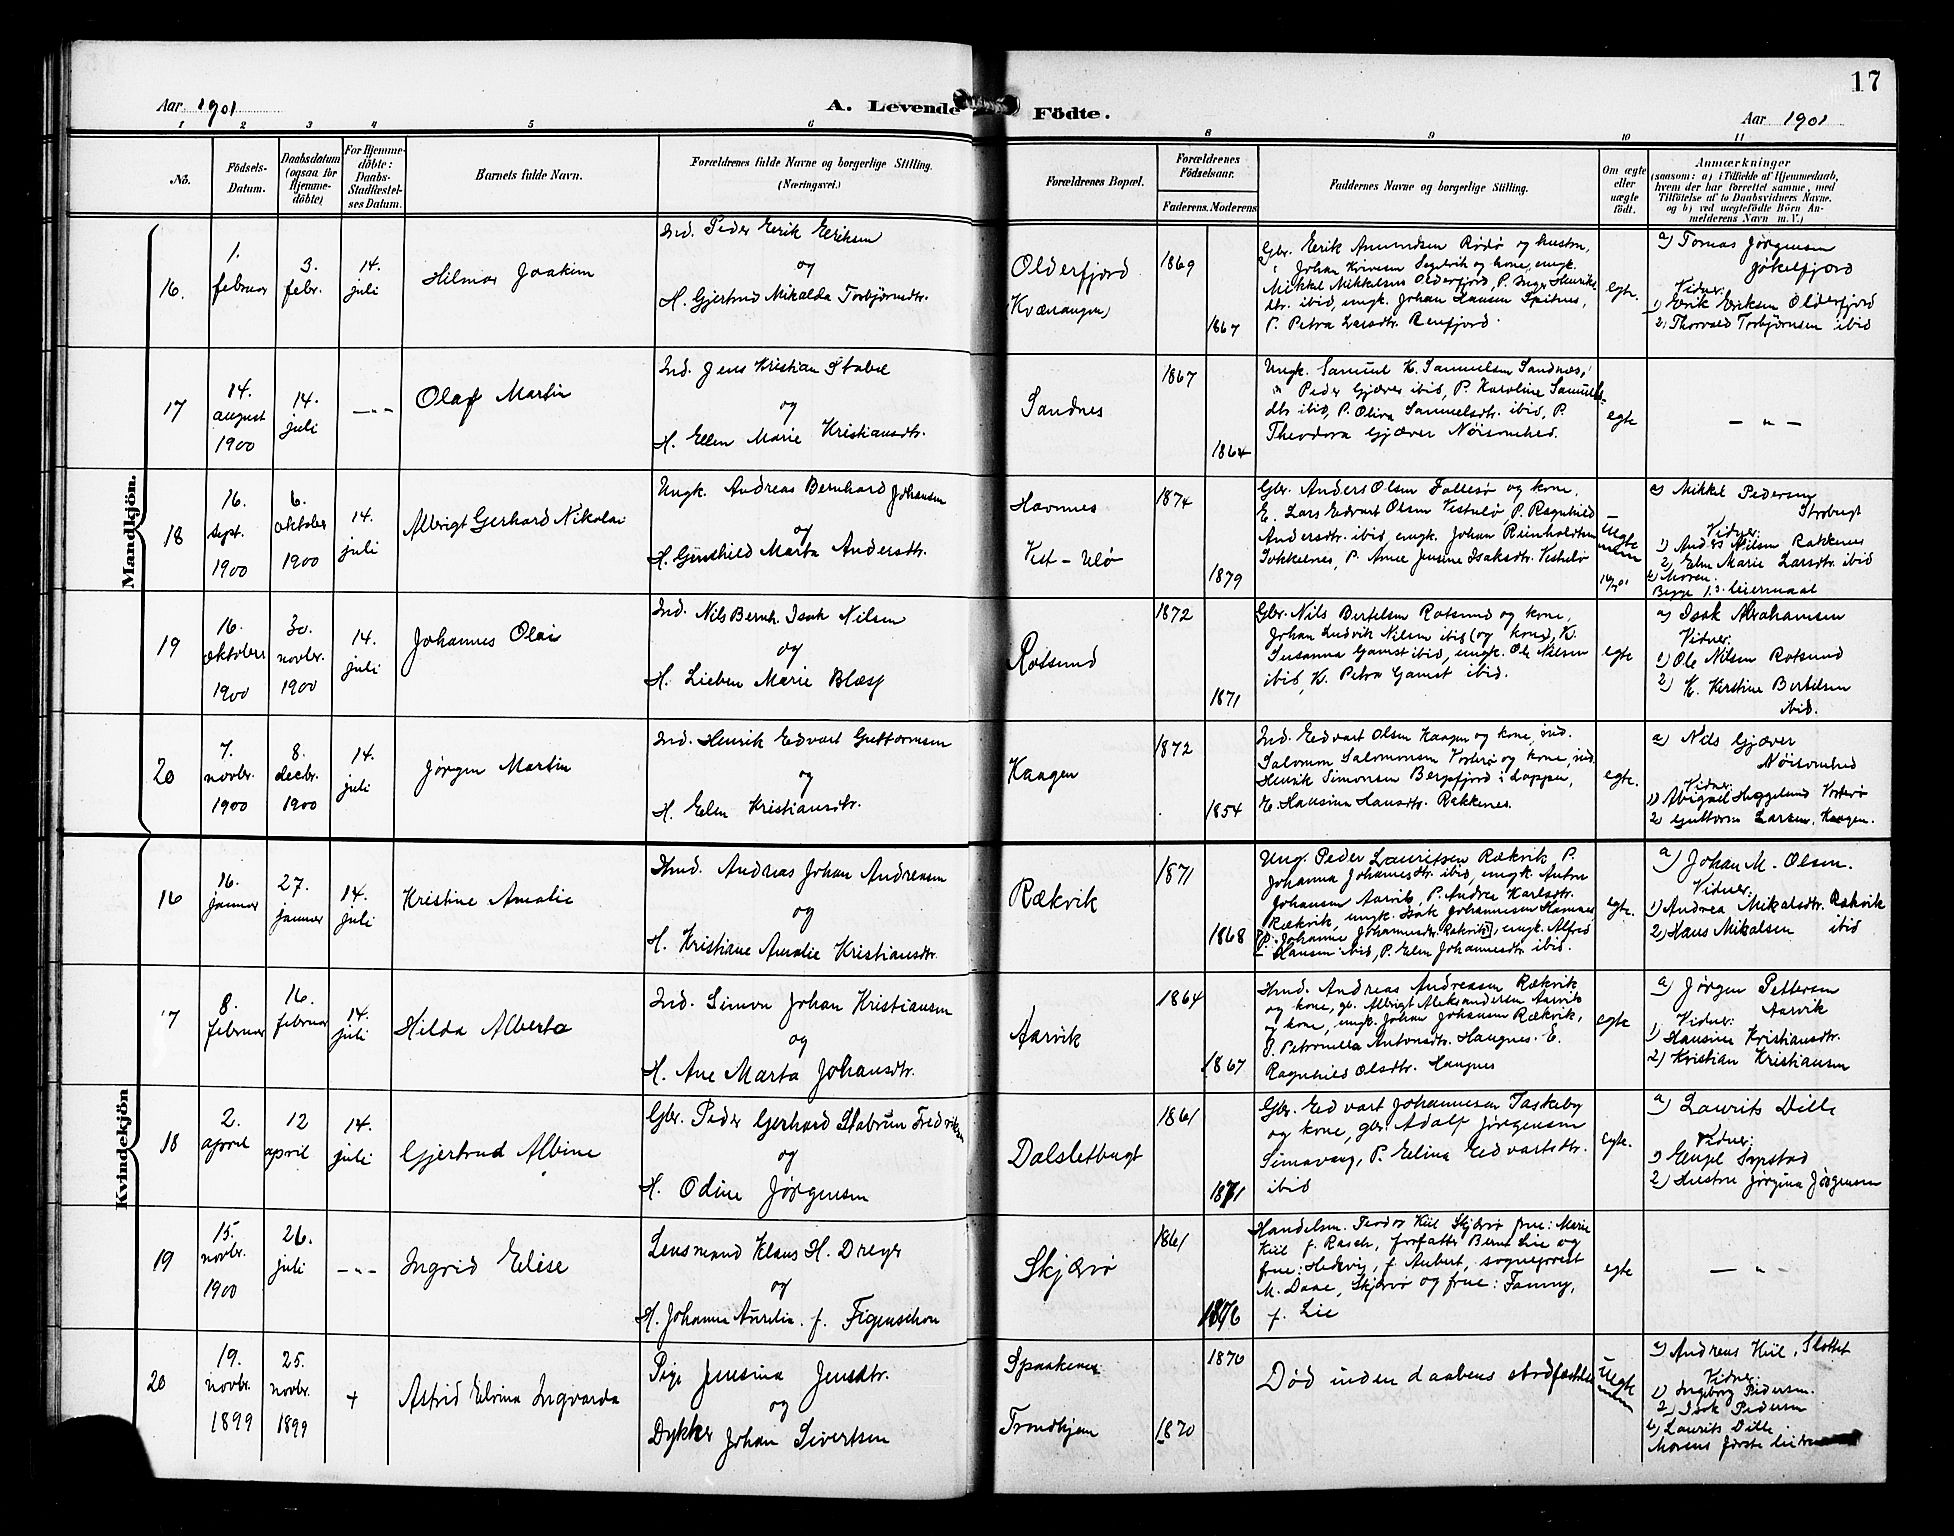 17
Aar 1901
A. Levende Födte.
Aar 1901
1 2 3 4 5 6 8 9 10 11
No.
Födsels-
Datum.
Daabsdatum
(ogsaa for
Hjemme-
döbte)
For Hjemme-
döbte:
Daabs-
Stadfæstel-
ses Datum.
Barnets fulde Navn.
Forældrenes fulde Navne og borgerlige Stilling.
(Næringsvei.)
Forældrenes Bopæl.
Forældrenes
Födselsaar.
Faderens. Moderens
Faddernes Navne og borgerlige Stilling.
Om ægte
eller
uægte
födt.
Anmærkninger
(saasom: a) i Tilfælde af Hjemmedaab,
hvem der har forrettet samme, med
Tilföielse af to Daabsvidners Navne.
og b) ved uægtefödte Börn An-
melderens Navn m. V.)
Mandkjön.
16.
1.
februar
3.
febr.
14.
juli
Hilmar Joakim
Ind. Peder Eerik Eeriksen
og
H. Gjertrud Mikalda Torbjörnsdtr.
Olderfjord
Kvænangen
1869
1867
Gbr. Eerik Amundsen Rødø og hustru,
Mikkel Mikkelsen Olderfjord, P. Inger Henriks-
dtr. ibid, ungk. Johan Hansen Spitnes,
P. Petra Larsdtr. Reinfjord.
egte.
a) Tomas Jørgensen
Jøkelfjord
Vidner:
1) Eerik Eeriksen Olderfjord
2) Thorvald Torbjørnsen ibid
17
14.
august
1900
14.
juli
- " -
Olaf Martin
Ind. Jens Kristian Stabel
og
H. Ellen Marie Kristiansdtr.
Sandnes
1867
1864
Ungk. Samuel K. Samuelsen Sandnes,
" Peder Gjæver ibid, P. Karoline Samuels-
dtr ibid, P. Oliva Samuelsdtr. ibid, P.
Theodora Gjæver Nøisomhed.
egte
- " -
18
16.
sept.
1900
6.
oktober
1900
14.
juli
Albrigt Gerhard Nikolai
Ungk. Andreas Bernhard Johansen
og
H. Gunhild Marta Andersdtr.
Havnnes
Vest-Ulø
1874
1879
Gbr. Anders Olsen Follesø og kone,
E. Lars Edvart Olsen Vestulø, P. Ragnhild
Andersdtr. ibid, ungk. Johan Reinholdtsen
Sokkelnes, P. Anne Jensine Isaksdtr. Vestulø
Uegte
a) Mikkel Pedersen
Strobugt
Vidner:
1) Anders Nilsen Rakkenes
2) Elen Marie Larsdtr. ibid
b) Moren.
Begge 1ste leiermaal
19
16.
oktober
1900
30.
novbr.
1900
14.
juli
Johannes Olai
Ind. Nils Bernh. Isak Nilsen
og
H. Lieben Marie Blæsg
Rotsund
1872
1871
Gbr. Nils Bertelsen Rotsund og kone,
Johan Ludvik Nilsen ibid (og kone), K.
Susanna Gamst ibid, ungk. Ole Nilsen
ibid, K. Petra Gamst ibid.
egte
a) Isak Abrahamsen
Vidner:
1) Ole Nilsen Rotsund
2) K. Kerstine Bertelsen
ibid.
20
7.
novbr.
1900
8.
decbr.
1900
14.
juli
Jørgen Martin
Ind. Henrik Edvart Guttormsen
og
H. Elen Kristiansdtr.
Kaagen
1872
1854
Ind. Eedvart Olsen Kaagen og kone, ind.
Salomon Salomonsen Vorterø og kone, ind.
Henrik Simonsen Bergsfjord i Loppen,
E. Hansina Hansdtr. Rakkenes.
egte.
a) Nils Gjæver
Nøisomhed
Vidner:
1) Abigael Heggelund Vorterø
2) Guttorm Larsen, Kaagen.
Kvindekjön
16
16.
januar
27.
januar
14.
juli
Kristine Amalie
Hmd. Andreas Johan Andreasen
og
H. Kristiane Amalie Kristiansdtr.
Rækvik
1871
1868
Ung. Peder Lauritsen Rækvik P.
Johanna Johannesdtr. ibid, ungk. Anton
Johansen Aarvik, P. Andrea Karlsdtr.
Rækvik, ungk. Isak Johannesen Hamnes
P. Johanne Johannesdtr. Rækvik, ungk. Alfred
Hansen ibid, P. Elen Johannesdtr. ibid.
egte.
a) Johan M. Olsen.
Vidner:
1) Andrea Mikalsdtr. Rækvik
2) Hans Mikalsen ibid
17
8.
februar
16.
februar
14.
juli
Hilda Alberta
Ind. Simon Johan Kristiansen
og
H. Ane Marta Johansdtr.
Aarvik
1864
1867
Hmd. Andreas Andreasen Rækvik
og kone, gbr. Albrigt Aleksandersen Aarvik
og kone, ungk. Johan Johansen Rækvik,
P. Petronella Antonsdtr. Haugnes. E.
Ragnhild Olsdtr. Haugnes
egte
a) Jørgen Pettersen
Aarvik
Vidner:
1) Hansine Kristiansdtr.
2) Kristian Kristiansen
18
2.
april
12
april
14.
juli
Gjertrud Albine
Gbr. Peder Gerhard Stabrun Fredriksen
og
H. Odine Jørgensen
Dalsletbugt
1861
1871
Gbr. Eedvart Johannesen Taskeby
og kone, gbr. Adolf Jørgensen
Simavaag, P. Elina Eedvartsdtr.
ibid
egte.
a) Laurits Dille
Vidner:
2) Hustru Jørgina Jørgensen
19
15.
novbr.
1900
26.
juli
- " -
Ingrid Elise
Lensmand Klaus H. Dreyer
og
H. Johanna Aurelia. f. Figenschou
Skjærvø
1861
1876
Handelsm. Peder Kiil Skjærvø frue: Marie
Kiil f. Rasch, forfatter Bernt Lie og
frue: Hedevig, f. Aubert, sogneprest
M. Daae, Skjærvø og frue: Fanny,
f. Lie
egte
- " -
20
19.
novbr.
1899
25.
novbr.
1899
+
Astrid Elvina Ingvarda
Pige Jensina Jensdtr.
og
Dykker Johan Sivertsen
Spaakenes
Trondhjem
1870
1870
Død inden daabens stadfæstelse
Uegte
a) Andreas Kiil, Slottet
Vidner:
1) Ingeborg Pedersen.
2) Isak Pedersen
b) Laurits Dille
Morens første